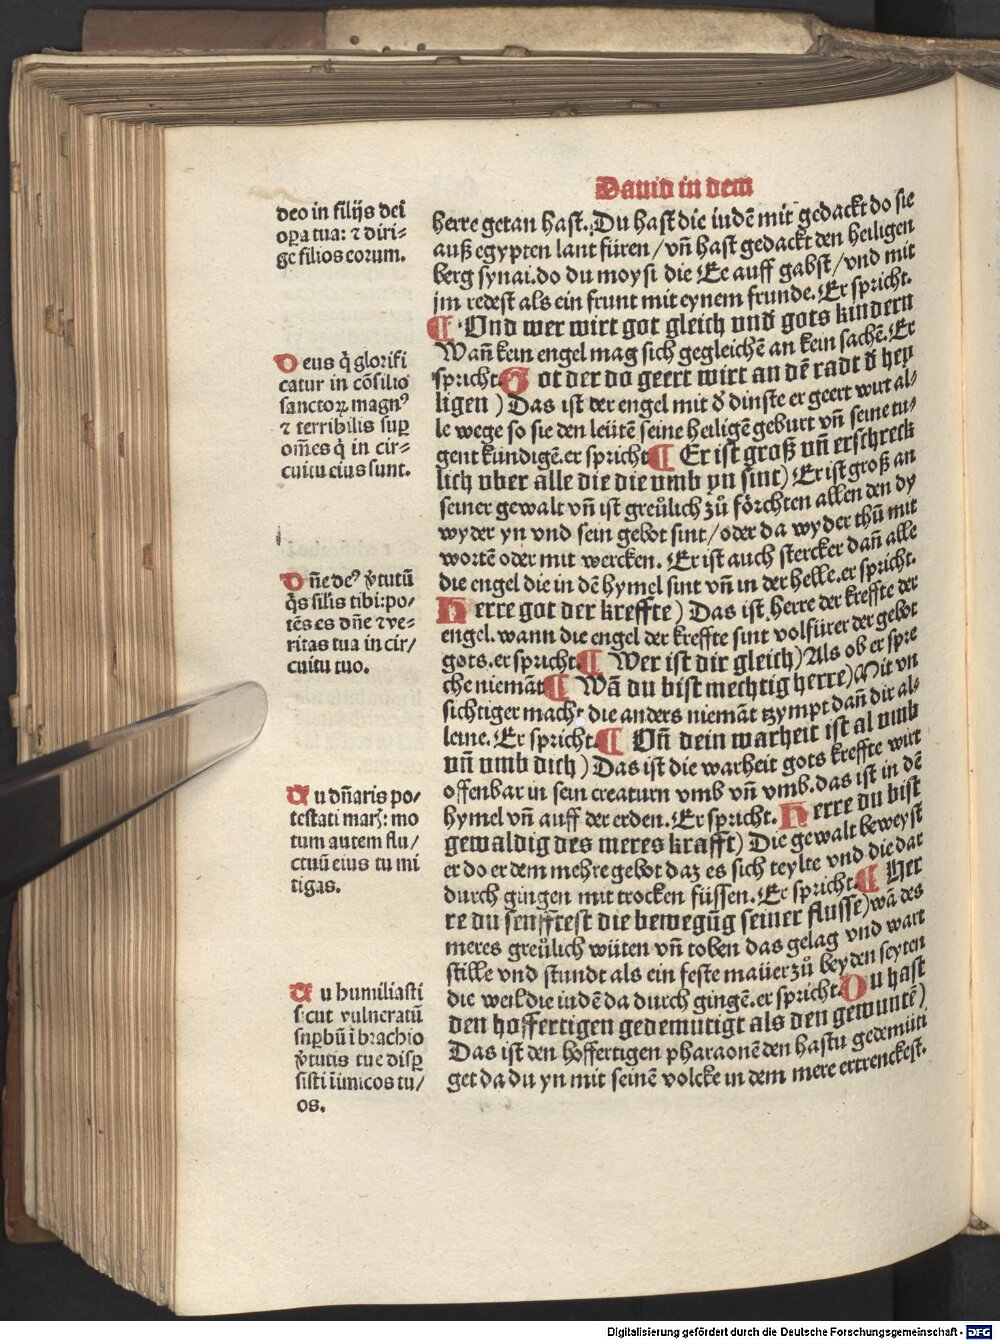 Dauid in dem
deo in filijs dei
oꝑa tua: ⁊ diri⸗
ge filios eorum.
Deus q̄ glorifi
catur in cōsilio
sanctoꝝ magnꝰ
⁊ terribilis suꝑ
om̄es q̄ in cir⸗
cuitu eius sunt.
Dn̄e deꝰ v̓tutū
q̄s silis tibi: po/
tēs es dn̄e ⁊ ve⸗
ritas tua in cir/
cuitu tuo.
Tu dn̄aris po⸗
testati marꝭ: mo
tum autem flu/
ctuū eius tu mi
tigas.
Tu humiliasti
sicut vulneratū
suꝑbū ī brachio
v̓tutis tue disꝑ
sisti īimicos tu/
os.
herre getan hast. Du hast die iudē mit gedackt do sie
auß egypten lant füren / vn̄ hast gedackt den heiligen
berg synai. do du moysi die Ee auff gabst / vnd mit
jm redest als ein frunt mit eynem frunde. Er spricht.
¶ Vnd wer wirt got gleich vnd gots kindern
Wan̄ kein engel mag sich gegleichē an kein sachē. Er
spricht. Got der do geert wirt an dē radt d̓ hey
ligen ) Das ist der engel mit d̓ dinste er geert wirt al⸗
le wege so sie den leütē seine heiligē geburt vn̄ seine tu⸗
gent kündigē. er spricht ¶ Er ist groß vn̄ erschreck
lich vber alle die die vmb yn sint) Er ist groß an
seiner gewalt vn̄ ist greülich zů förchten allen den dy
wyder yn vnd sein gebot sint / oder da wyder thū mit
wortē oder mit wercken. Er ist auch stercker dan̄ alle
die engel die in dē hymel sint vn̄ in der helle. er spricht.
Herre got der kreffte) Das ist. Herre der kreffte der
engel. wann die engel der kreffte sint volfürer der gebot
gots. er spricht ¶ Wer ist dir gleich) Als ob er spre
che niemāt ¶ Wā du bist mechtig herre) Mit vn
sichtiger macht die anders niemāt tzympt dan̄ dir al⸗
leine. Er spricht. ¶ Vn̄ dein warheit ist al vmb
vn̄ vmb dich ) Das ist die warheit gots kreffte wirt
offenbar in sein creaturn vmb vn̄ vmb. das ist in dē
hymel vn̄ auff der erden. Er spricht. Herre du bist
gewaldig des meres krafft) Die gewalt beweyst
er do er dem mehre gebot daz es sich teylte vnd die dar
durch gingen mit trocken füssen. Er spricht. ¶ Her
re du senfftest die bewegūg seiner flusse) wā des
meres greülich wüten vn̄ toben das gelag vnd wart
stille vnd stundt als ein feste maüer zů beyden seyten
die weil die iudē da durch gingē. er spricht. Du hast
den hoffertigen gedemutigt als den gewuntē)
Das ist den hoffertigen pharaonē den hastu gedemüti
get da du yn mit seinē volcke in dem mere ertrenckest.
Digitalisierung gefördert durch die Deutsche Forschungsgemeinschaft - DFG